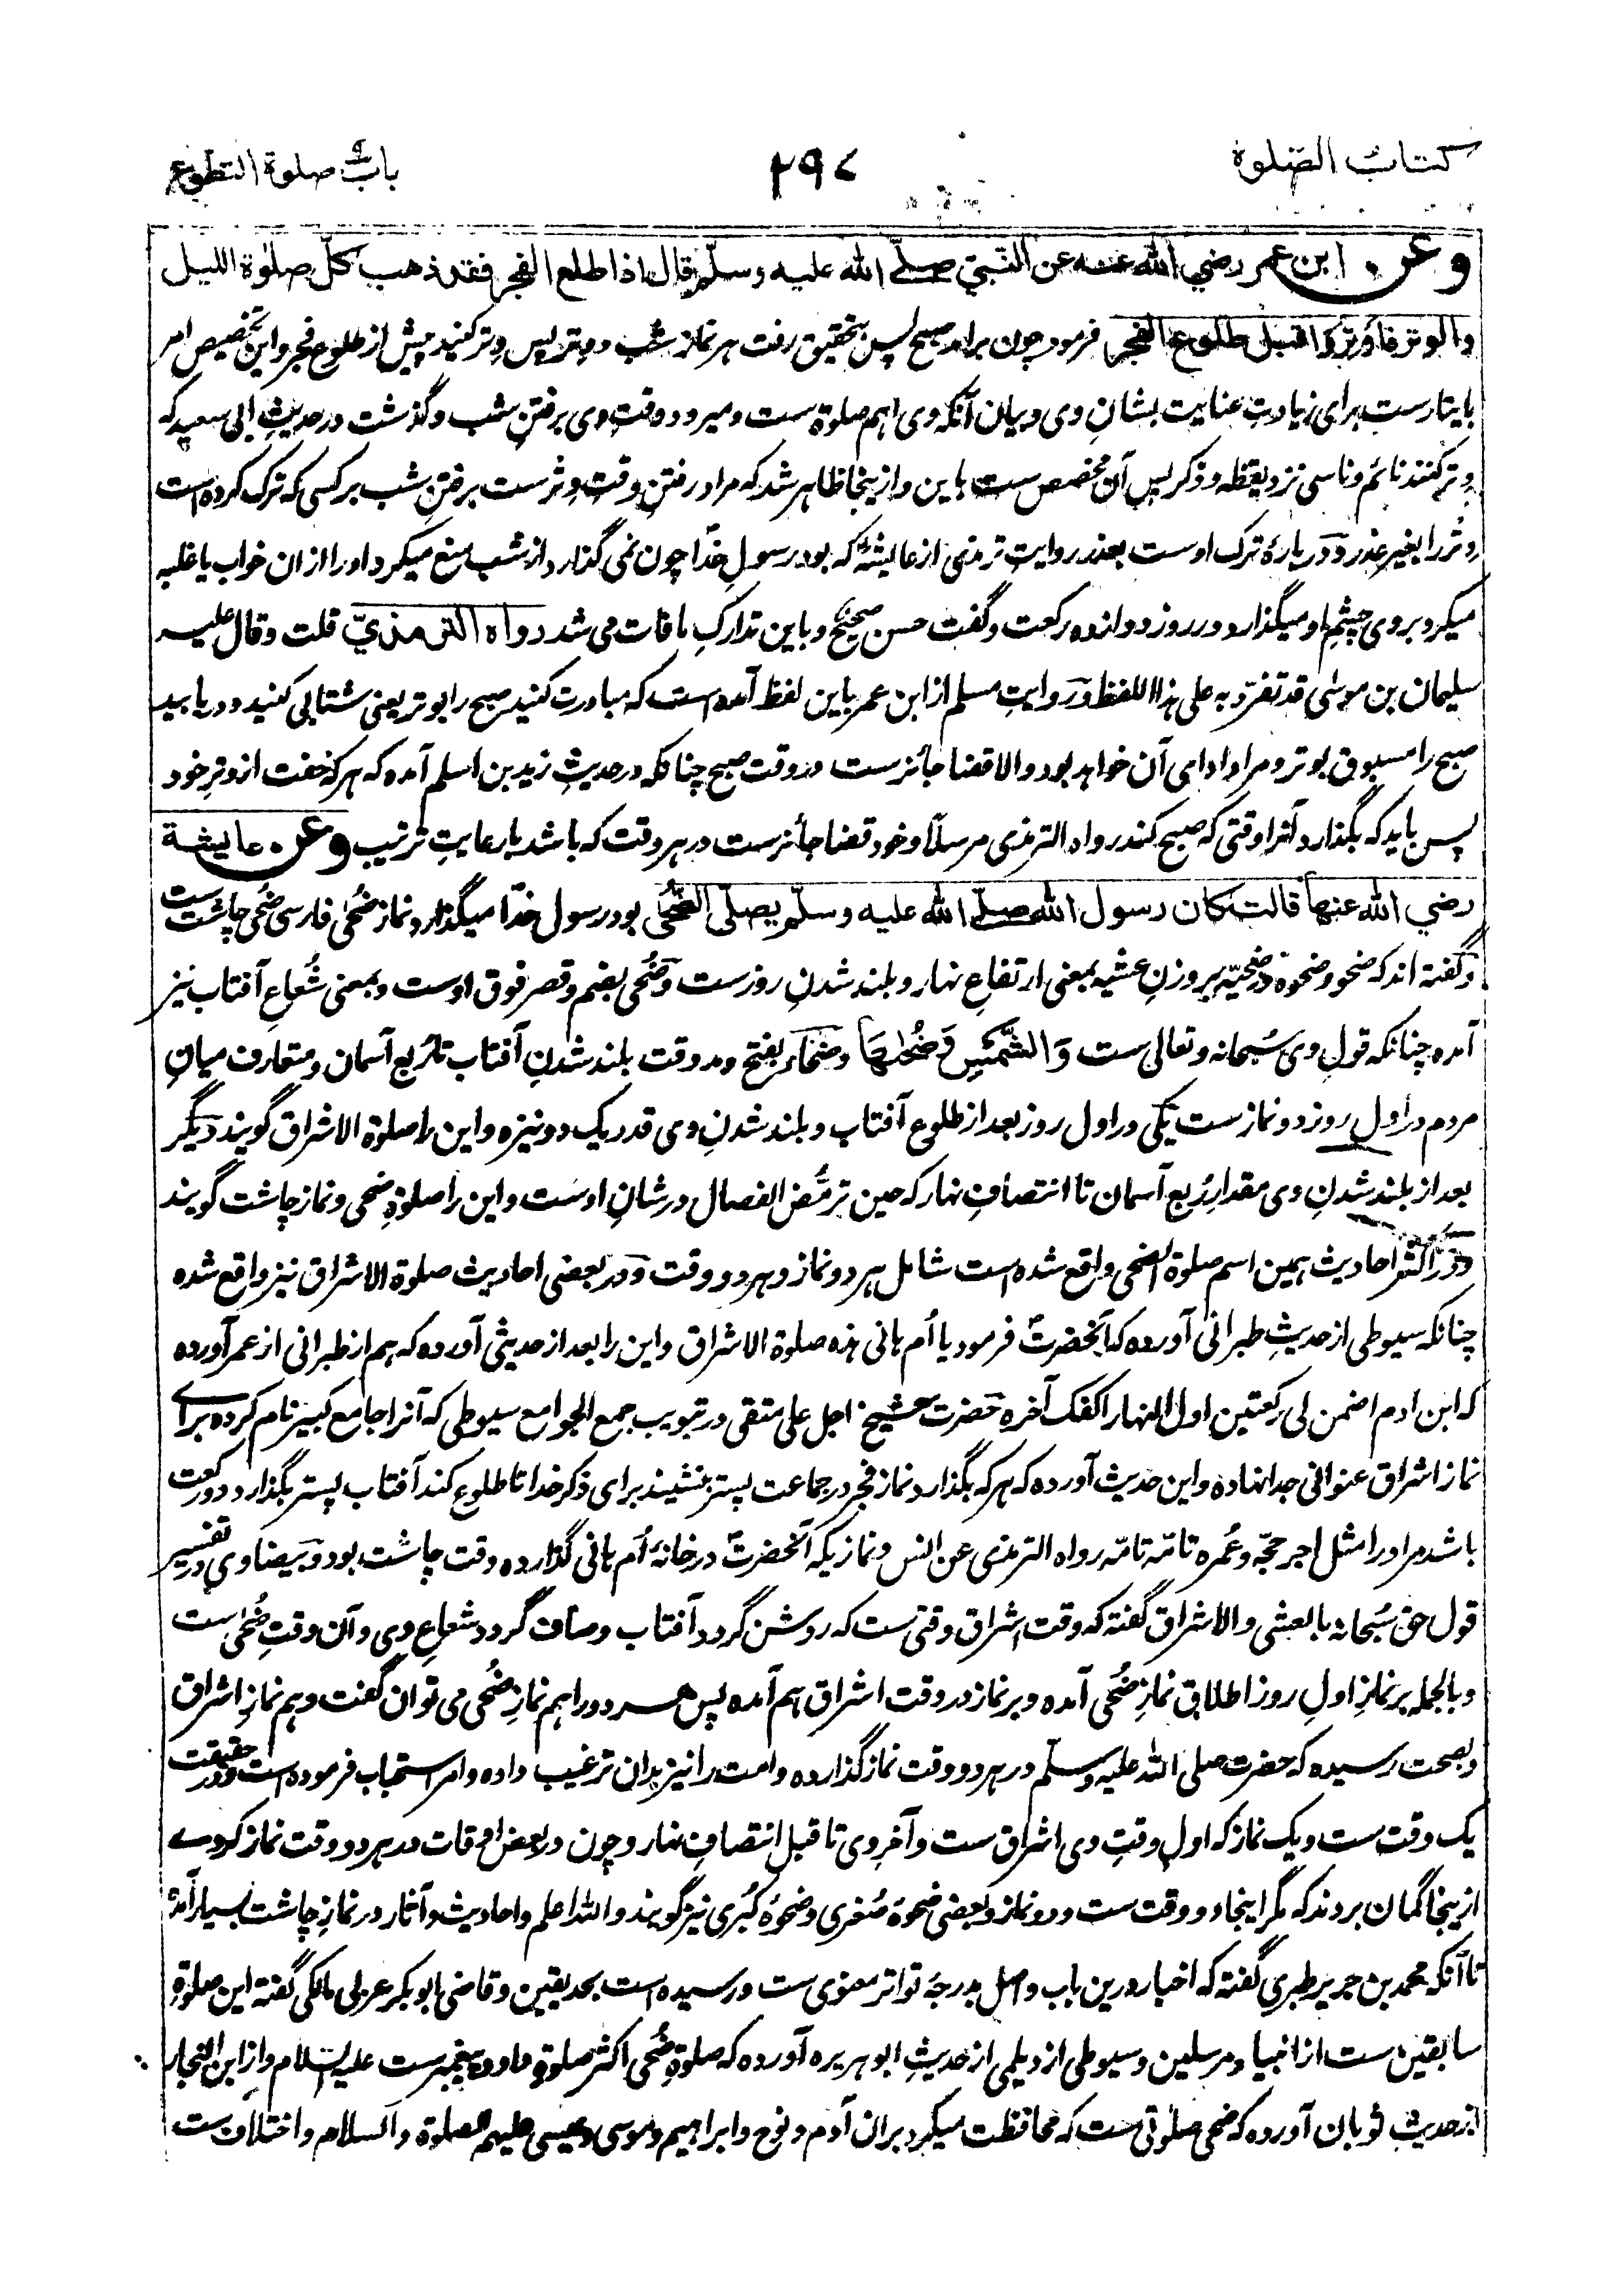 کتاب الصّلوة
۲۹۷
باب ۹ صلوة التطوع
وعن ابن عمر رضي الله عنه عن النّبيّ صلّے الله علیه وسلّم قال اذا طلع الفجر فقد ذهب کلّ صلوٰة اللیل
والوتر فاَوتِرُوا قبل طلوع الفجر فرمود چون برآمد صبح پس بتحقیق رفت هر نماز شب و وتر پس وتر کنید پیش از طلوع فجر و این تخصیص امر
بایتارست برای زیادتِ عنایت بشانِ وی و بیان آنکه وی اہم صلوة ست و میرود وقتِ وی برفتنِ شب و گذشت در حدیثِ ابی سعید که
وتر کنند نائم و ناسی نزد یقظه و ذکر پس آن مخصص ست باین و از ینجا ظاہر شد که مراد رفتنِ وقتِ وتر ست برفتنِ شب بر کسی که ترک کرده است
وتر را بغیر عذر و در بارهٔ ترک اوست بعذر روایتِ ترمذی از عایشه که بود رسولِ خدا چون نمی گذارد از شب منع میکرد او را از ان خواب یا غلبه
میکرد بر وی چشم او میگذارد در روز دوازده رکعت و گفت حسن صحیح و باین تدارکِ مافات می شد رواه الترمذيّ قلت و قال علیه
سلیمان بن موسٰی قد تفرّد به علی ہذا اللفظ و روایتِ مسلم از ابن عمر باین لفظ آمده است که مبادرت کنید صبح را بوتر یعنی شتابی کنید و دریابید
صبح را مسبوق بوتر و مراد ادامی آن خواهد بود والا قضا جائزست در وقت صبح چنانکه در حدیثِ زید بن اسلم آمده که ہر که خفت از وترِ خود
پس باید که بگذارد آنرا وقتی که صبح کند رواه الترمذی مرسلاً و خود قضا جائزست در ہر وقت که باشد با رعایتِ ترتیب وعن عایشة
رضي الله عنها قالت کان رسول الله صلّے الله علیه وسلّم یصلّی الضُّحٰی بود رسول خدا میگذارد نماز ضُحٰی فارسی ضُحٰی چاشت ست
و گفته اند که ضحو و ضحوة و ضحیّه بروزنِ عشیه بمعنی ارتفاعِ نہار و بلند شدنِ روزست و ضُحٰی بضم و قصر فوق اوست و بمعنی شُعاعِ آفتاب نیز
آمده چنانکه قولِ وی سُبحانه و تعالی ست وَالشَّمْسِ وَضُحٰهَا و ضحاء بفتح و مد وقت بلند شدنِ آفتاب تا ربع آسمان و متعارف میانِ
مردم در اول روز دو نماز ست یکی در اول روز بعد از طلوع آفتاب و بلند شدنِ وی قدر یک دو نیزه و این را صلوة الاشراق گویند دیگر
بعد از بلند شدنِ وی مقدارِ رُبع آسمان تا انتصافِ نہار که حین ترمُّض الفصال در شانِ اوست و این را صلوةِ ضحی و نماز چاشت گویند
و در اکثر احادیث ہمین اسم صلوة الضحی واقع شده است شامل ہر دو نماز و ہر دو وقت و در بعضی احادیث صلوة الاشراق نیز واقع شده
چنانکه سیوطی از حدیثِ طبرانی آورده که آنحضرت فرمود یا اُم ہانی ہذه صلوة الاشراق و این را بعد از حدیثی آورده که ہم از طبرانی از عمر آورده
که ابن ادم اضمن لی رکعتین اول النهار اکفک آخره حضرت شیخ اجل علی متقی در تبویب جمع الجوامع سیوطی که آنرا جامع کبیر نام کرده برائے
نماز اشراق عنوانی جدا نهاده و این حدیث آورده که ہر که بگذارد نماز فجر در جماعت پستر بنشیند برای ذکر خدا تا طلوع کند آفتاب پستر بگذارد دو رکعت
باشد مر او را مثل اجر حجّه و عُمره تامّه تامّه رواه الترمذی عن انس و نمازیکه آنحضرت در خانهٔ اُم ہانی گذارده وقت چاشت بود و بیضاوی در تفسیر
قول حق سُبحانه بالعشی والاشراق گفته که وقت اشراق وقتی ست که روشن گردد آفتاب و صاف گردد شعاعِ وی و آن وقتِ ضُحٰی است
و بالجمله بر نمازِ اولِ روز اطلاقِ نمازِ ضُحٰی آمده و بر نماز در وقت اشراق ہم آمده پس ہر دو را ہم نمازِ ضُحٰی می توان گفت و ہم نمازِ اشراق
و بصحت رسیده که حضرت صلی الله علیه وسلّم در ہر دو وقت نماز گذارده و امت را نیز بدان ترغیب داده و امر استحباب فرموده است و در حقیقت
یک وقت ست و یک نماز که اول وقتِ وی اشراق ست و آخرِ وی تا قبل انتصافِ نہار و چون در بعض اوقات در ہر دو وقت نماز کردے
از ینجا گمان بردند که مگر اینجا دو وقت ست و دو نماز و بعضی ضحوهٔ صُغری و ضحوهٔ کُبری نیز گویند والله اعلم و احادیث و آثار در نماز چاشت بسیار آمده
تا آنکه محمد بن جریر طبری گفته که اخبار درین باب واصل بدرجهٔ تواتر معنوی ست و رسیده است بحد یقین و قاضی ابو بکر عربی مالکی گفته این صلوةِ
سابقین ست از انبیا و مرسلین و سیوطی از دیلمی از حدیثِ ابو ہریره آورده که صلوةِ ضُحٰی اکثر صلوةِ داود پیغمبرست علیه السلام و از ابن النجار
از حدیثِ ثوبان آورده که ضحی صلوتی ست که محافظت میکرد بران آدم و نوح و ابراہیم و موسی و عیسی علیهم الصلوة والسلام و اختلاف ست